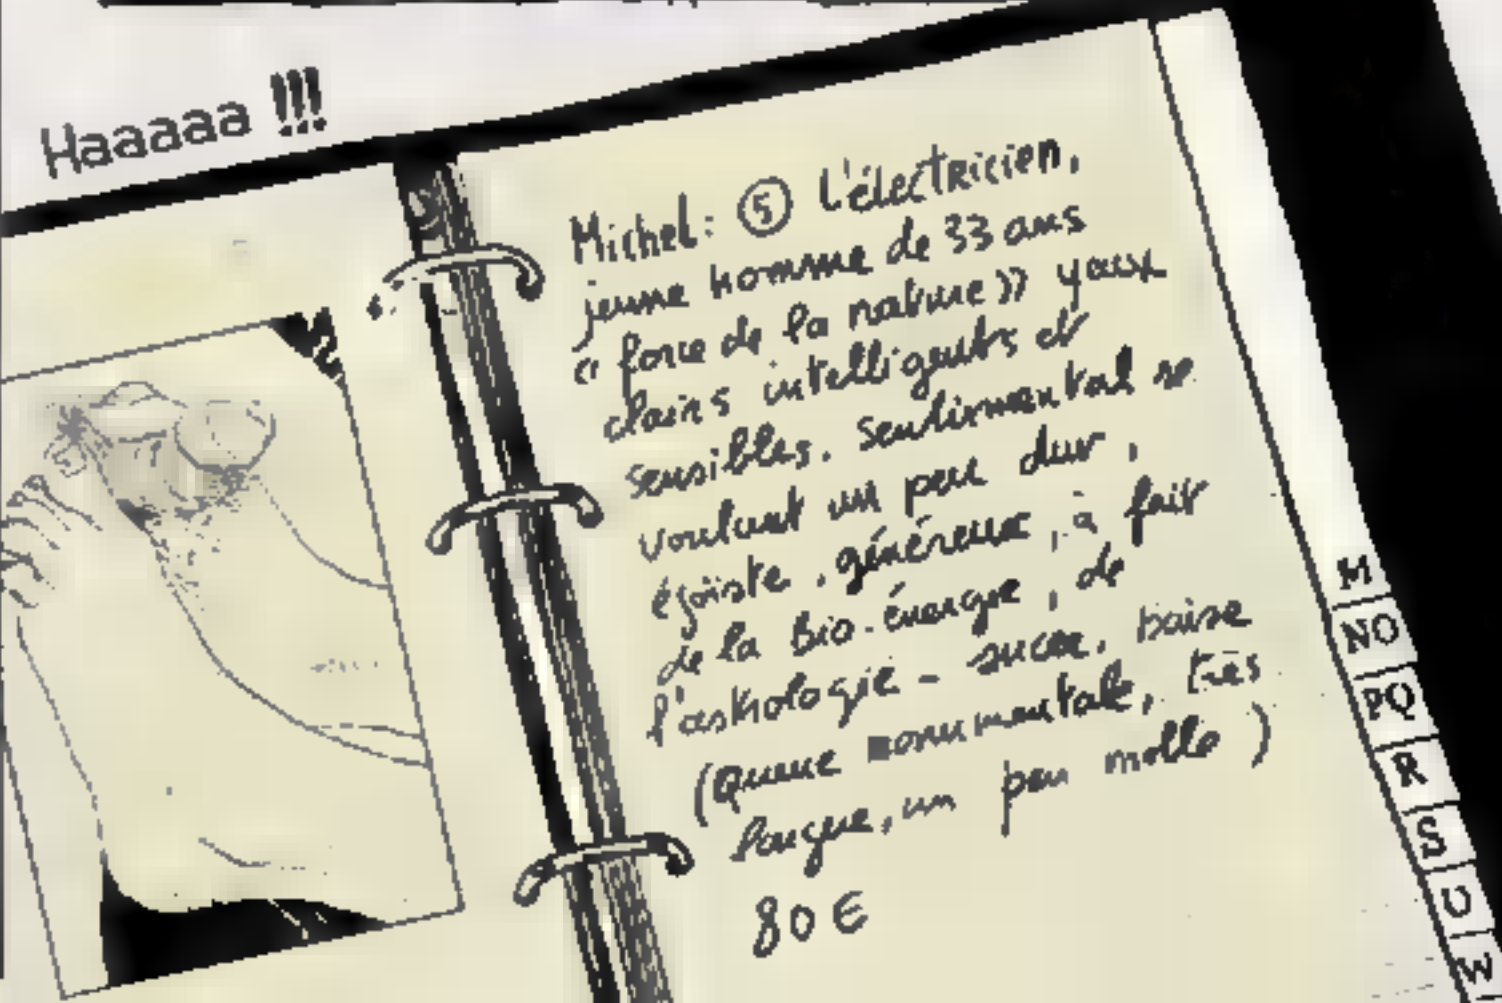 Haaaaa !!!
Michel: ⑤ L'électricien,
jeune homme de 33 ans
« force de la nature » yeux
clairs intelligents et
sensibles. sentimental se
voulant un peu dur,
égoïste, généreux, à fait
de la bio-énergie, de
l'astrologie - suce, baise
(queue monumentale, très
longue, un peu molle)
80 €
M
NO
PQ
R
S
U
W